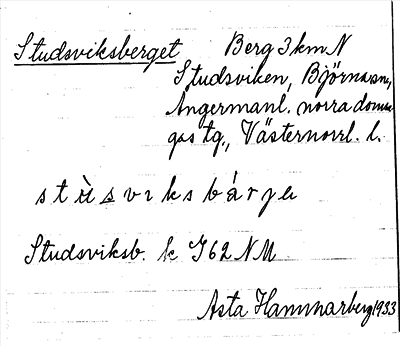 Studsviksberget Berg 3 km N
Studsviken, Björna sn,
Ångermanl. norra doms-
gas tg., Västernorrl. l.
stùsviksbárje
Studsviksb. k J62 NM
Asta Hammarberg 1933